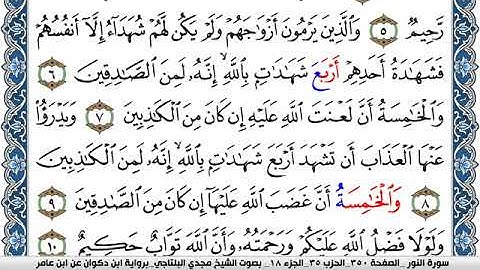 رَّحِيمٌ ٥ وَالَّذِينَ يَرْمُونَ أَزْوَاجَهُمْ وَلَمْ يَكُن لَّهُمْ شُهَدَاءُ إِلَّا أَنفُسُهُمْ
فَشَهَادَةُ أَحَدِهِمْ أَرْبَعَ شَهَادَاتٍ بِاللَّهِ إِنَّهُ لَمِنَ الصَّادِقِينَ ٦
وَالْخَامِسَةُ أَنَّ لَعْنَتَ اللَّهِ عَلَيْهِ إِن كَانَ مِنَ الْكَاذِبِينَ ٧ وَيَدْرَؤُا
عَنْهَا الْعَذَابَ أَن تَشْهَدَ أَرْبَعَ شَهَادَاتٍ بِاللَّهِ إِنَّهُ لَمِنَ الْكَاذِبِينَ
٨ وَالْخَامِسَةُ أَنَّ غَضَبَ اللَّهِ عَلَيْهَا إِن كَانَ مِنَ الصَّادِقِينَ ٩
وَلَوْلَا فَضْلُ اللَّهِ عَلَيْكُمْ وَرَحْمَتُهُ وَأَنَّ اللَّهَ تَوَّابٌ حَكِيمٌ ١٠
سورة النور _ الصفحة ٣٥٠ _ الحزب ٣٥ _ الجزء ١٨ _ بصوت الشيخ مجدي البلتاجي _ برواية ابن ذكوان عن ابن عامر